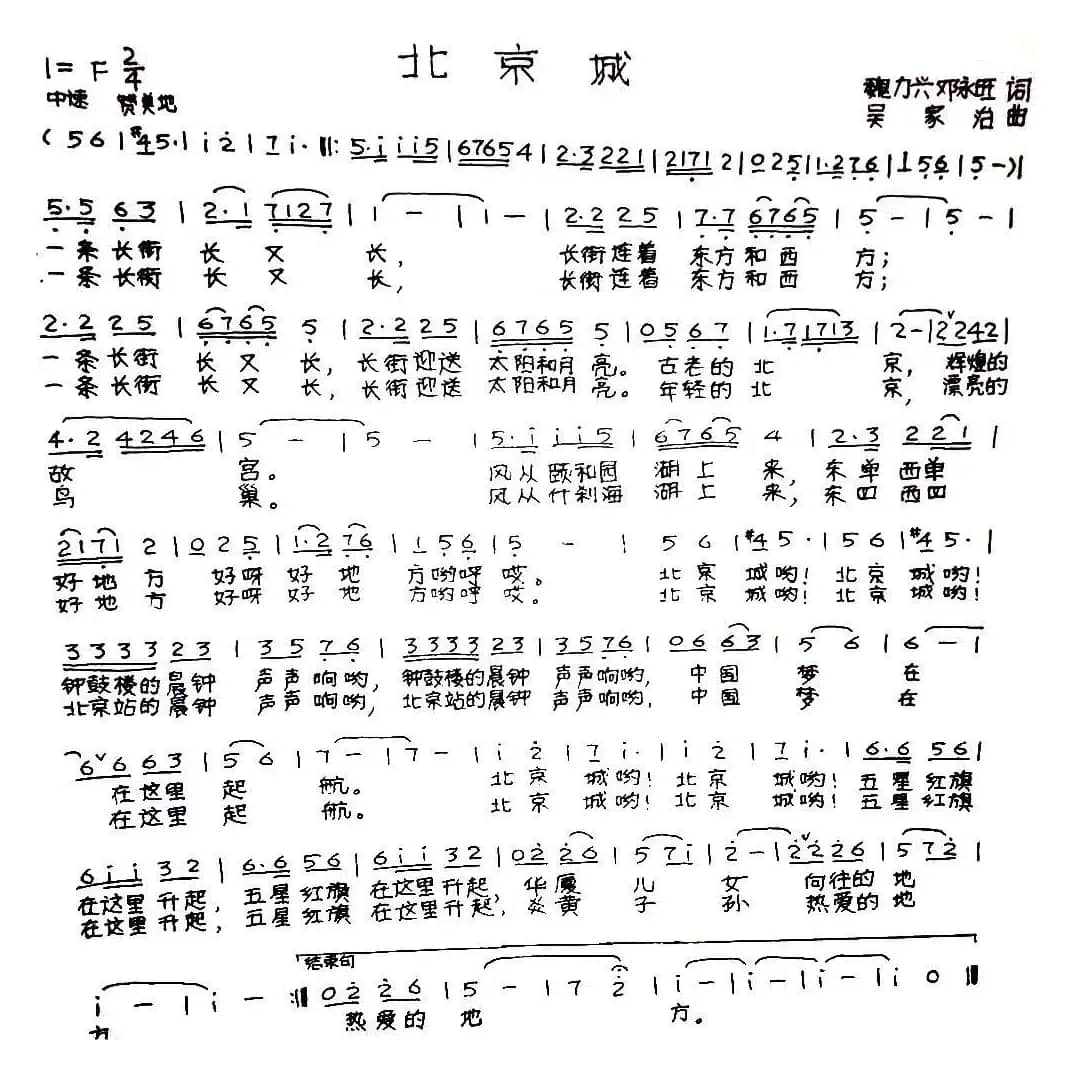 北京城
1=F 2/4
中速 赞美地
魏力兴 邓永旺 词
吴家治 曲
(5 6 | #4 5· | i 2 | 7 i· ‖: 5·i i i 5 | 6 7 6 5 4 | 2·3 2 2 1 | 2 1 7 1 2 | 0 2 5 | 1·2 7 6 | 1 5 6 | 5 -) |
5·5 6 3 | 2·1 7 1 2 7 | 1 - | 1 - | 2·2 2 5 | 7·7 6 7 6 5 | 5 - | 5 - |
一条长街 长又长, 长街连着 东方和西方;
一条长街 长又长, 长街连着 东方和西方;
2·2 2 5 | 6 7 6 5 5 | 2·2 2 5 | 6 7 6 5 5 | 0 5 6 7 | 1·7 1 7 1 3 | 2 - | 2 2 4 2 |
一条长街 长又长, 长街迎送 太阳和月亮。 古老的北京, 辉煌的
一条长街 长又长, 长街迎送 太阳和月亮。 年轻的北京, 漂亮的
4·2 4 2 4 6 | 5 - | 5 - | 5·i i i 5 | 6 7 6 5 4 | 2·3 2 2 1 |
故宫。 风从颐和园 湖上来, 东单西单
鸟巢。 风从什刹海 湖上来, 东四西四
2 1 7 1 2 | 0 2 5 | 1·2 7 6 | 1 5 6 | 5 - | 5 6 | #4 5· | 5 6 | #4 5· |
好地方 好呀好地方哟呼哎。 北京城哟! 北京城哟!
好地方 好呀好地方哟呼哎。 北京城哟! 北京城哟!
3 3 3 3 2 3 | 3 5 7 6 | 3 3 3 3 2 3 | 3 5 7 6 | 0 6 6 3 | 5 6 | 6 - |
钟鼓楼的晨钟 声声响哟, 钟鼓楼的晨钟 声声响哟, 中国梦在
北京站的晨钟 声声响哟, 北京站的晨钟 声声响哟, 中国梦在
6 6 6 3 | 5 6 | 7 - | 7 - | i 2 | 7 i· | i 2 | 7 i· | 6·6 5 6 |
在这里起航。 北京城哟! 北京城哟! 五星红旗
在这里起航。 北京城哟! 北京城哟! 五星红旗
6 i i 3 2 | 6·6 5 6 | 6 i i 3 2 | 0 2 2 6 | 5 7 i | 2 - | 2 2 2 6 | 5 7 2 |
在这里升起, 五星红旗 在这里升起, 华厦儿女 向往的地
在这里升起, 五星红旗 在这里升起, 炎黄子孙 热爱的地
结束句
i - | i - :‖ 0 2 2 6 | 5 - | 7 2 | i - | i - | i - | i 0 ‖
方 热爱的地方。